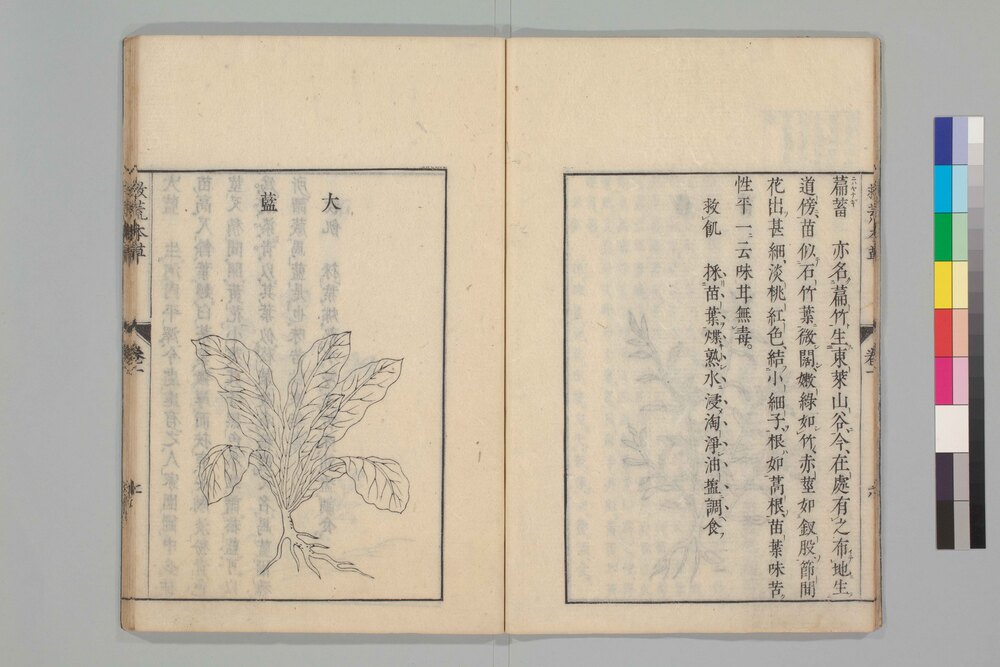 萹蓄 亦名萹竹生東萊山谷今在處有之布地生
道傍苗似石竹葉微闊嫩綠如竹赤莖如釵股節間
花出甚細淡桃紅色結小細子根如蒿根苗葉味苦
性平一云味甘無毒。
救飢 採苗葉煠熟水浸淘淨油鹽調食
大
藍
救荒本草
卷一
七